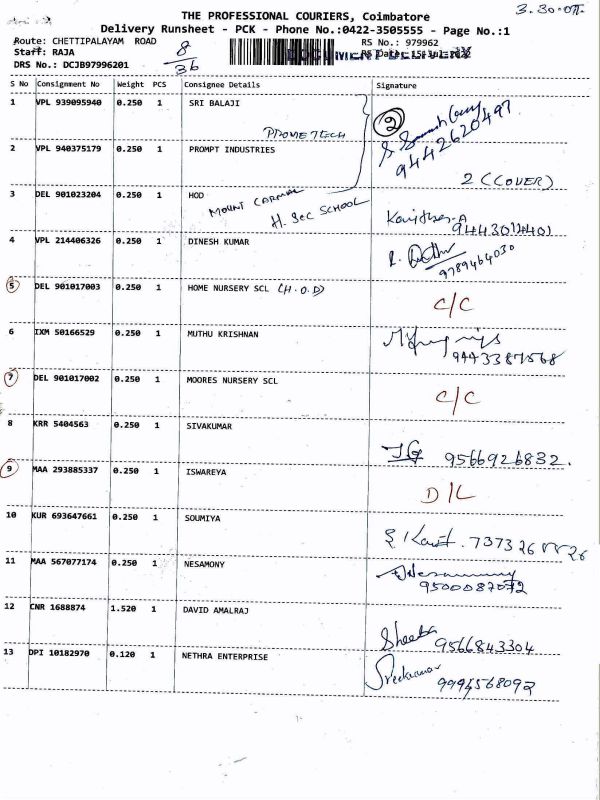 3.30.
THE PROFESSIONAL COURIERS, Coimbatore
Delivery Runsheet - PCK - Phone No.:0422-3505555 - Page No.:1
Route: CHETTIPALAYAM ROAD
RS No.: 979962
Staff: RAJA
8
DRS No.: DCJB97996201
36
S No Consignment No Weight PCS Consignee Details Signature
1 VPL 939095940 0.250 1 SRI BALAJI
2
9442620497
PROMETECH
2 VPL 940375179 0.250 1 PROMPT INDUSTRIES
2 (COVER)
3 DEL 901023204 0.250 1 HOD
MOUNT CARMAL
H. Sec SCHOOL
4 VPL 214406326 0.250 1 DINESH KUMAR
9789464030
5 DEL 901017003 0.250 1 HOME NURSERY SCL (H.O.D)
C/C
6 IXM 50166529 0.250 1 MUTHU KRISHNAN
9443387568
7 DEL 901017002 0.250 1 MOORES NURSERY SCL
C/C
8 KRR 5404563 0.250 1 SIVAKUMAR
9566926832.
9 MAA 293885337 0.250 1 ISWAREYA
D/L
10 KUR 693647661 0.250 1 SOUMIYA
11 MAA 567077174 0.250 1 NESAMONY
9500087072
12 CNR 1688874 1.520 1 DAVID AMALRAJ
Sheeba 9566843304
13 DPI 10182970 0.120 1 NETHRA ENTERPRISE
Sreekumar 9994568092